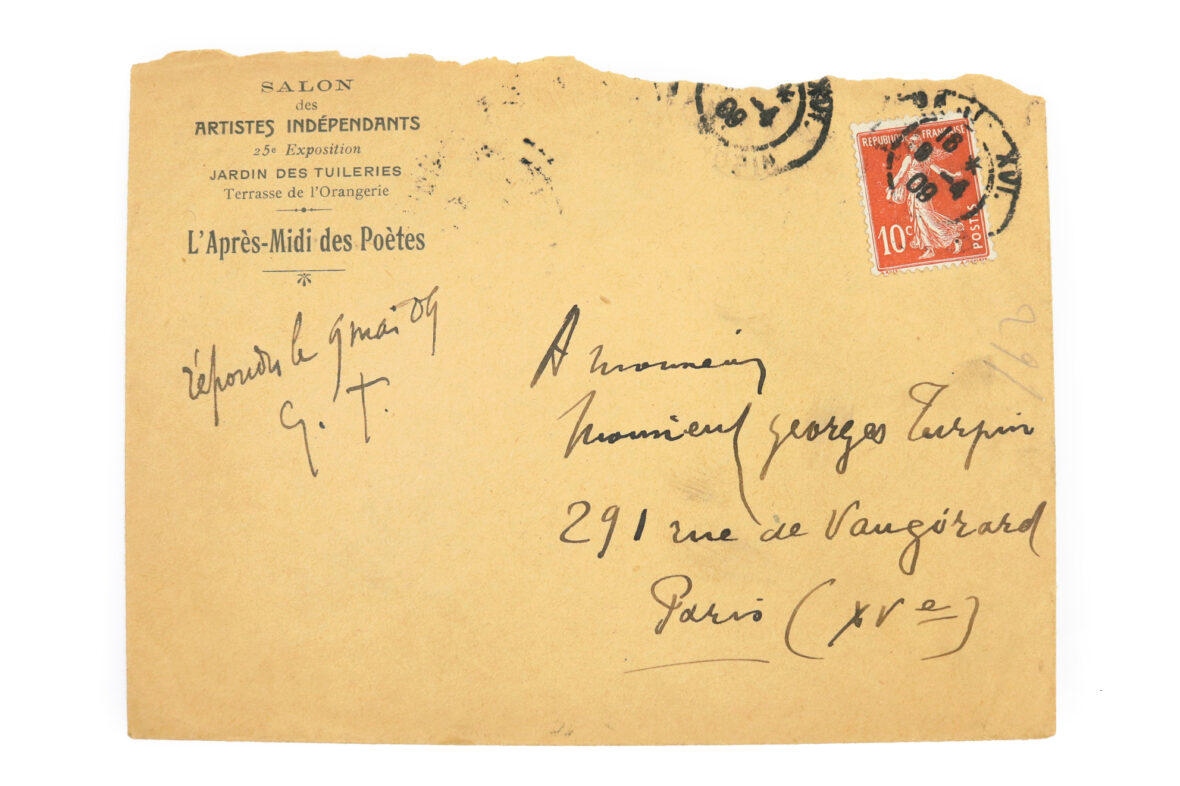 SALON
des
ARTISTES INDÉPENDANTS
25e Exposition
JARDIN DES TUILERIES
Terrasse de l'Orangerie
L'Après-Midi des Poètes
répondu le 9 mai 09
G. T.
XVI.
09
XVI.
16
09
RÉPUBLIQUE FRANÇAISE
10c
POSTES
A Monsieur
Monsieur georges Turpin
291 rue de Vaugirard
Paris (XVe)